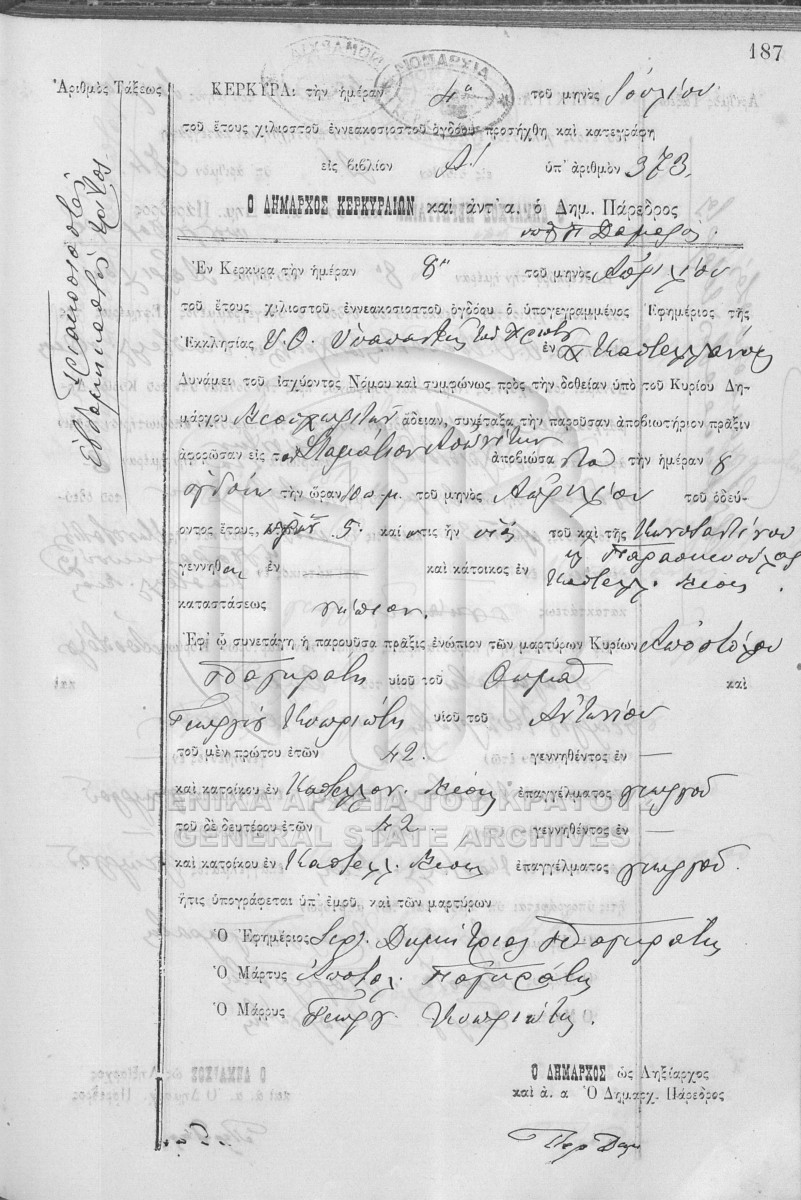 187
Ἀριθμὸς Τάξεως
Τριακοσιοστὸς
Ἑβδομηκοστὸς τρίτος
ΝΟΜΑΡΧΙΑ
ΚΕΡΚΥΡΑ: τὴν ἡμέραν 4η τοῦ μηνὸς Ἰουλίου
τοῦ ἔτους χιλιοστοῦ ἐννεακοσιοστοῦ ὀγδόου προσήχθη καὶ κατεγράφη
εἰς βιβλίον Α' ὑπ' ἀριθμὸν 373.
Ο ΔΗΜΑΡΧΟΣ ΚΕΡΚΥΡΑΙΩΝ καὶ ἀντ' α. ὁ Δημ. Πάρεδρος
Ἐν Κερκύρᾳ τὴν ἡμέραν 8ην τοῦ μηνὸς Ἀπριλίου
τοῦ ἔτους χιλιοστοῦ ἐννεακοσιοστοῦ ὀγδόου ὁ ὑπογεγραμμένος Ἐφημέριος τῆς
Ἐκκλησίας Υ.Θ. Ὑπαπαντῆς τοῦ Χριστοῦ ἐν Καστελλάνοις
Δυνάμει τοῦ ἰσχύοντος Νόμου καὶ συμφώνως πρὸς τὴν δοθεῖσαν ὑπὸ τοῦ Κυρίου Δη-
μάρχου Μεσοχωριτῶν ἄδειαν, συνέταξα τὴν παροῦσαν ἀποβιωτήριον πρᾶξιν
ἀφορῶσαν εἰς τὸν Σταμάτιον ἀποβιώσαντα τὴν ἡμέραν 8
ὀγδόην τὴν ὥραν 10 π.μ. τοῦ μηνὸς Ἀπριλίου τοῦ ὁδεύ-
οντος ἔτους, ἐτῶν 5. καὶ ὅστις ἦν υἱὸς τοῦ καὶ τῆς Κωνσταντίνου
κ Παρασκευούλας
γεννηθεὶς ἐν — καὶ κάτοικος ἐν Καστελλ. Μέσης.
καταστάσεως νήπιον.
Ἐφ' ᾧ συνετάγη ἡ παροῦσα πρᾶξις ἐνώπιον τῶν μαρτύρων Κυρίων Ἀποστόλου
Παγκράτη υἱοῦ τοῦ Θωμᾶ καὶ
Γεωργίου Κυπριώτη υἱοῦ τοῦ Ἀντωνίου
τοῦ μὲν πρώτου ἐτῶν 42. γεννηθέντος ἐν —
καὶ κατοίκου ἐν Καστελλάν. Μέσης ἐπαγγέλματος γεωργοῦ
ΓΕΝΙΚΑ ΑΡΧΕΙΑ ΤΟΥ ΚΡΑΤΟΥΣ
τοῦ δὲ δευτέρου ἐτῶν 42 γεννηθέντος ἐν —
GENERAL STATE ARCHIVES
καὶ κατοίκου ἐν Καστελλ. Μέσης ἐπαγγέλματος γεωργοῦ.
ἥτις ὑπογράφεται ὑπ' ἐμοῦ καὶ τῶν μαρτύρων
Ὁ Ἐφημέριος Ἱερ. Δημήτριος Παγκράτης
Ὁ Μάρτυς Ἀποστολ. Παγκράτης
Ὁ Μάρρυς Γεωργ. Κυπριώτης.
Ο ΔΗΜΑΡΧΟΣ ὡς Ληξίαρχος
καὶ ἀ. α Ὁ Δημαρχ. Πάρεδρος